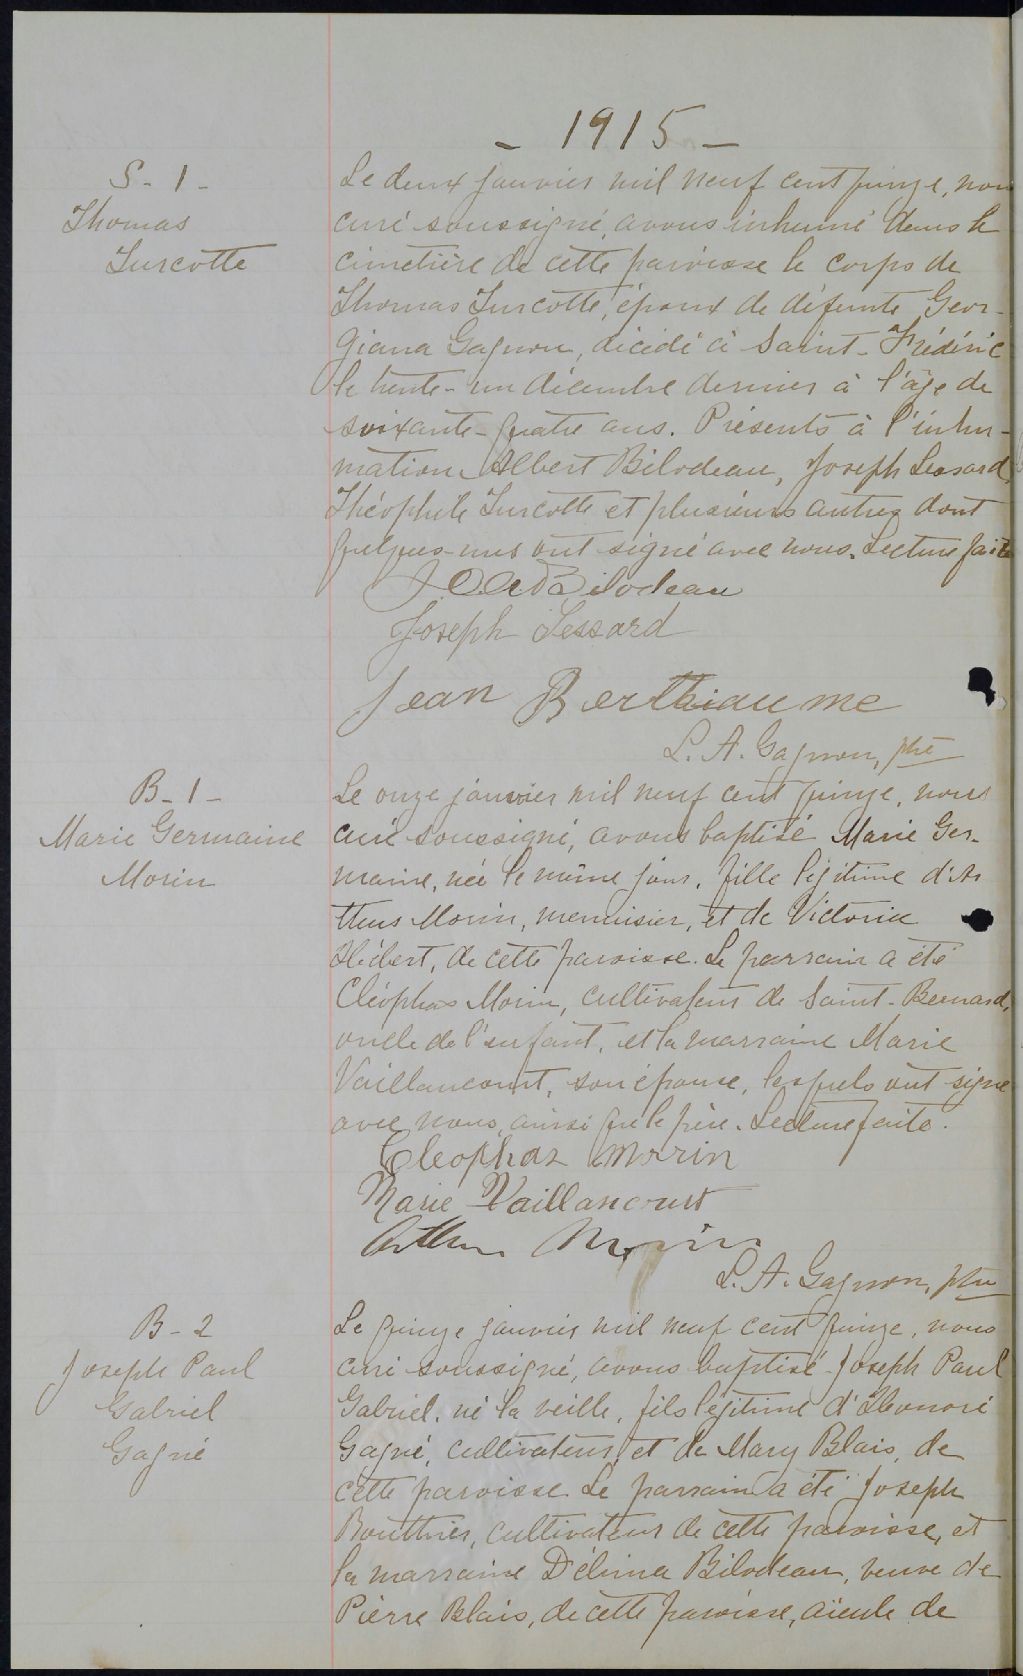 - 1915 -
S - 1 -
Thomas
Turcotte
Le deux janvier mil neuf cent quinze, nous
curé soussigné, avons inhumé dans le
cimetière de cette paroisse le corps de
Thomas Turcotte, époux de défunte Geor-
giana Gagnon, décédé à Saint-Frédéric
le trente-un décembre dernier à l'âge de
soixante-quatre ans. Présents à l'inhu-
mation Albert Bilodeau, Joseph Lessard,
Théophile Turcotte et plusieurs autres dont
quelques-uns ont signé avec nous. Lecture faite
Bilodeau
Joseph Lessard
Jean Berthiaume
L. A. Gagnon, ptre
B - 1 -
Marie Germaine
Morin
Le onze janvier mil neuf cent quinze, nous
curé soussigné, avons baptisé Marie Ger-
maine, née le même jour, fille légitime d'Ar
thur Morin, menuisier, et de Victoria
Hébert, de cette paroisse. Le parrain a été
Cléophas Morin, cultivateur de Saint-Bernard,
oncle de l'enfant, et la marraine Marie
Vaillancourt, son épouse, lesquels ont signé
avec nous, ainsi que le père. Lecture faite.
Cleophas Morin
Marie Vaillancourt
Arthur Morin
L. A. Gagnon, ptre
B - 2
Joseph Paul
Gabriel
Gagné
Le quinze janvier mil neuf cent quinze, nous
curé soussigné, avons baptisé Joseph Paul
Gabriel, né la veille, fils légitime d'Honoré
Gagné, cultivateur, et de Mary Blais, de
cette paroisse. Le parrain a été Joseph
Bouthier, cultivateur de cette paroisse, et
la marraine Délima Bilodeau, veuve de
Pierre Blais, de cette paroisse, aïeule de